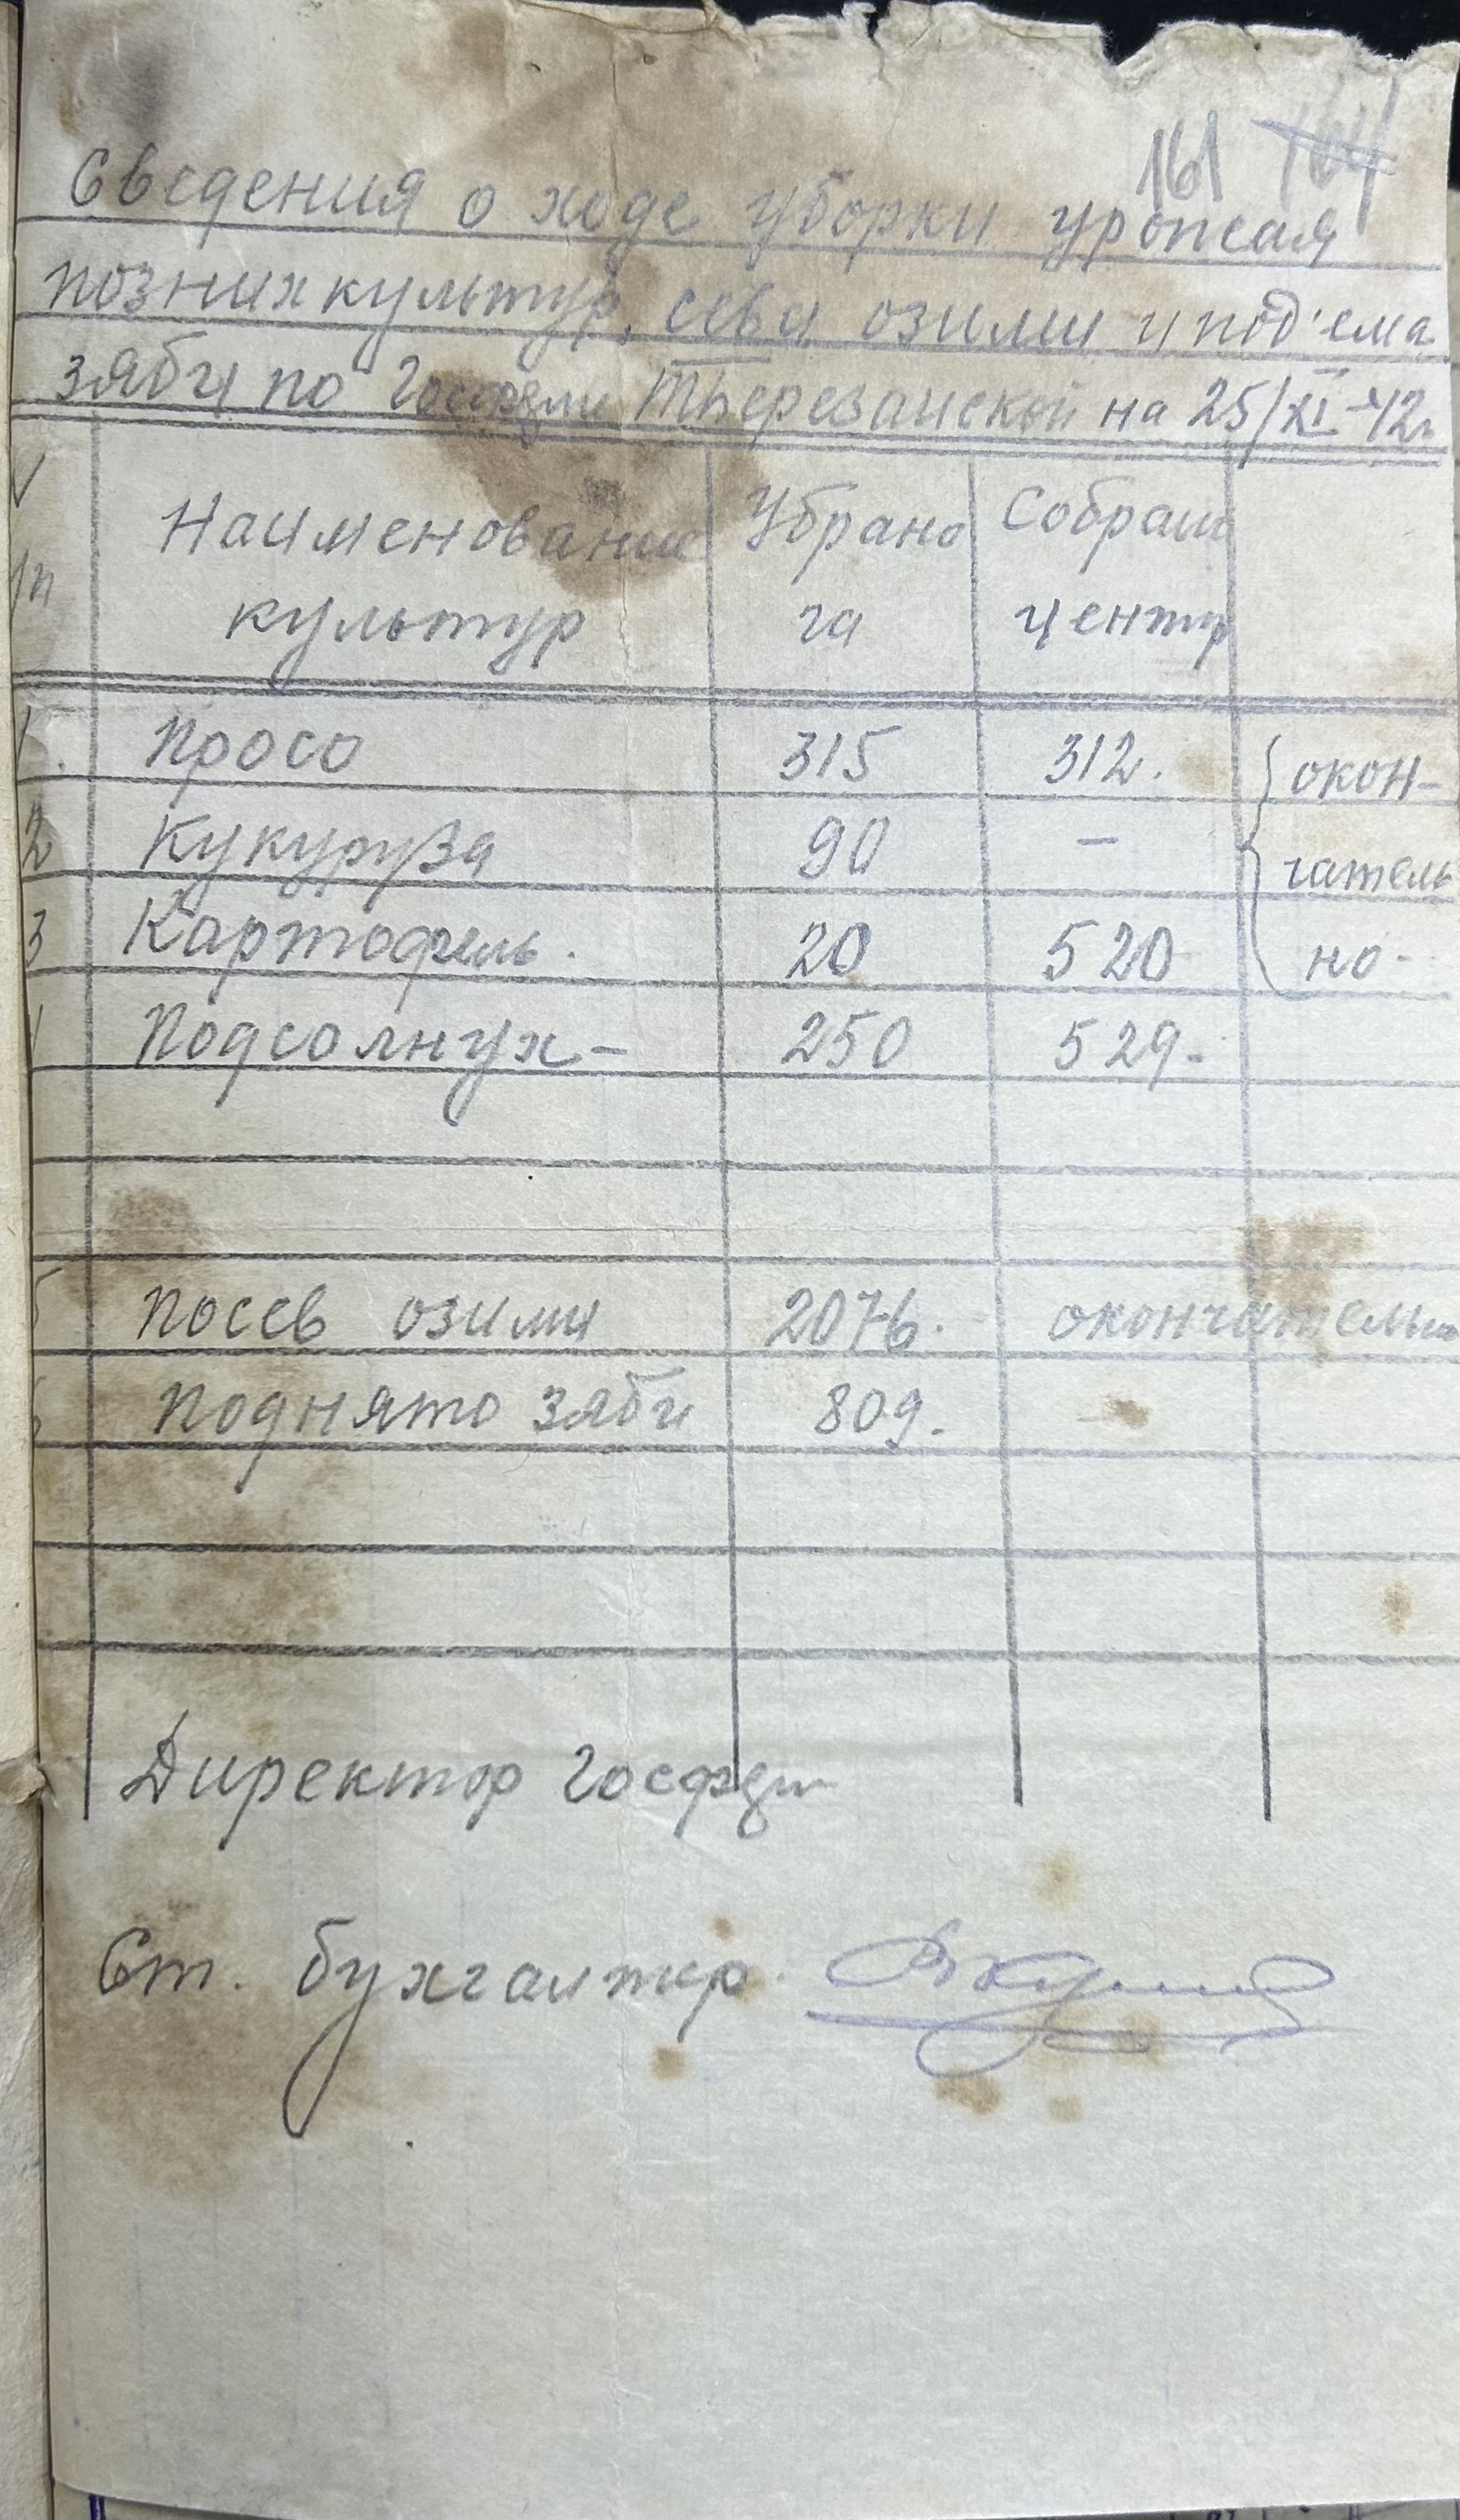 161 164
Сведения о ходе уборки урожая
позних культур, сева озими и под'ема
зяби по Госферми на 25/XI-42г.
Наименование Убрано Собрано
/п культур га центр
1. Просо 315 312. окон-
2 Кукуруза 90 – чатель
3 Картофель. 20 520 но-
4 Подсолнух – 250 529-
5 Посев озими 2076. окончательно
6 Поднято зяби 809. –
Директор Госферм
Ст. бухгалтер